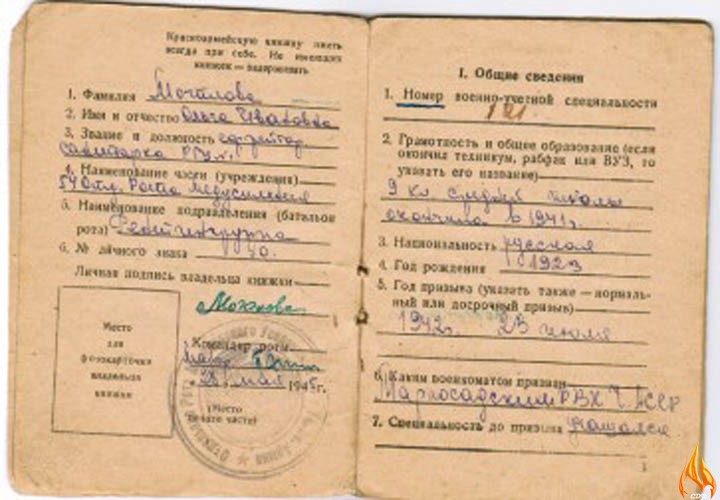 Красноармейскую книжку иметь
всегда при себе. Не имеющих
книжек — задерживать
1. Фамилия Мочалова
2. Имя и отчество Ольга Ивановна
3. Звание и должность ефрейтор
санитарка
4. Наименование части (учреждения)
54 отд. Рота медусиления
5. Наименование подразделения (батальон
рота)
6. № личного знака
Личная подпись владельца книжки
Командир роты
май 1945 г.
Место
для
фотокарточки
владельца
книжки
(Место
печати части)
I. Общие сведения
1. Номер военно-учетной специальности
121
2. Грамотность и общее образование (если
окончил техникум, рабфак или ВУЗ, то
указать его название)
9 кл. средней школы
окончила в 1941 г.
3. Национальность русская
4. Год рождения 1923
5. Год призыва (указать также — нормаль-
ный или досрочный призыв)
1942 г. 23 июля
6. Каким военкоматом призван
Марпосадским РВК Ч.АССР
7. Специальность до призыва учащаяся
1